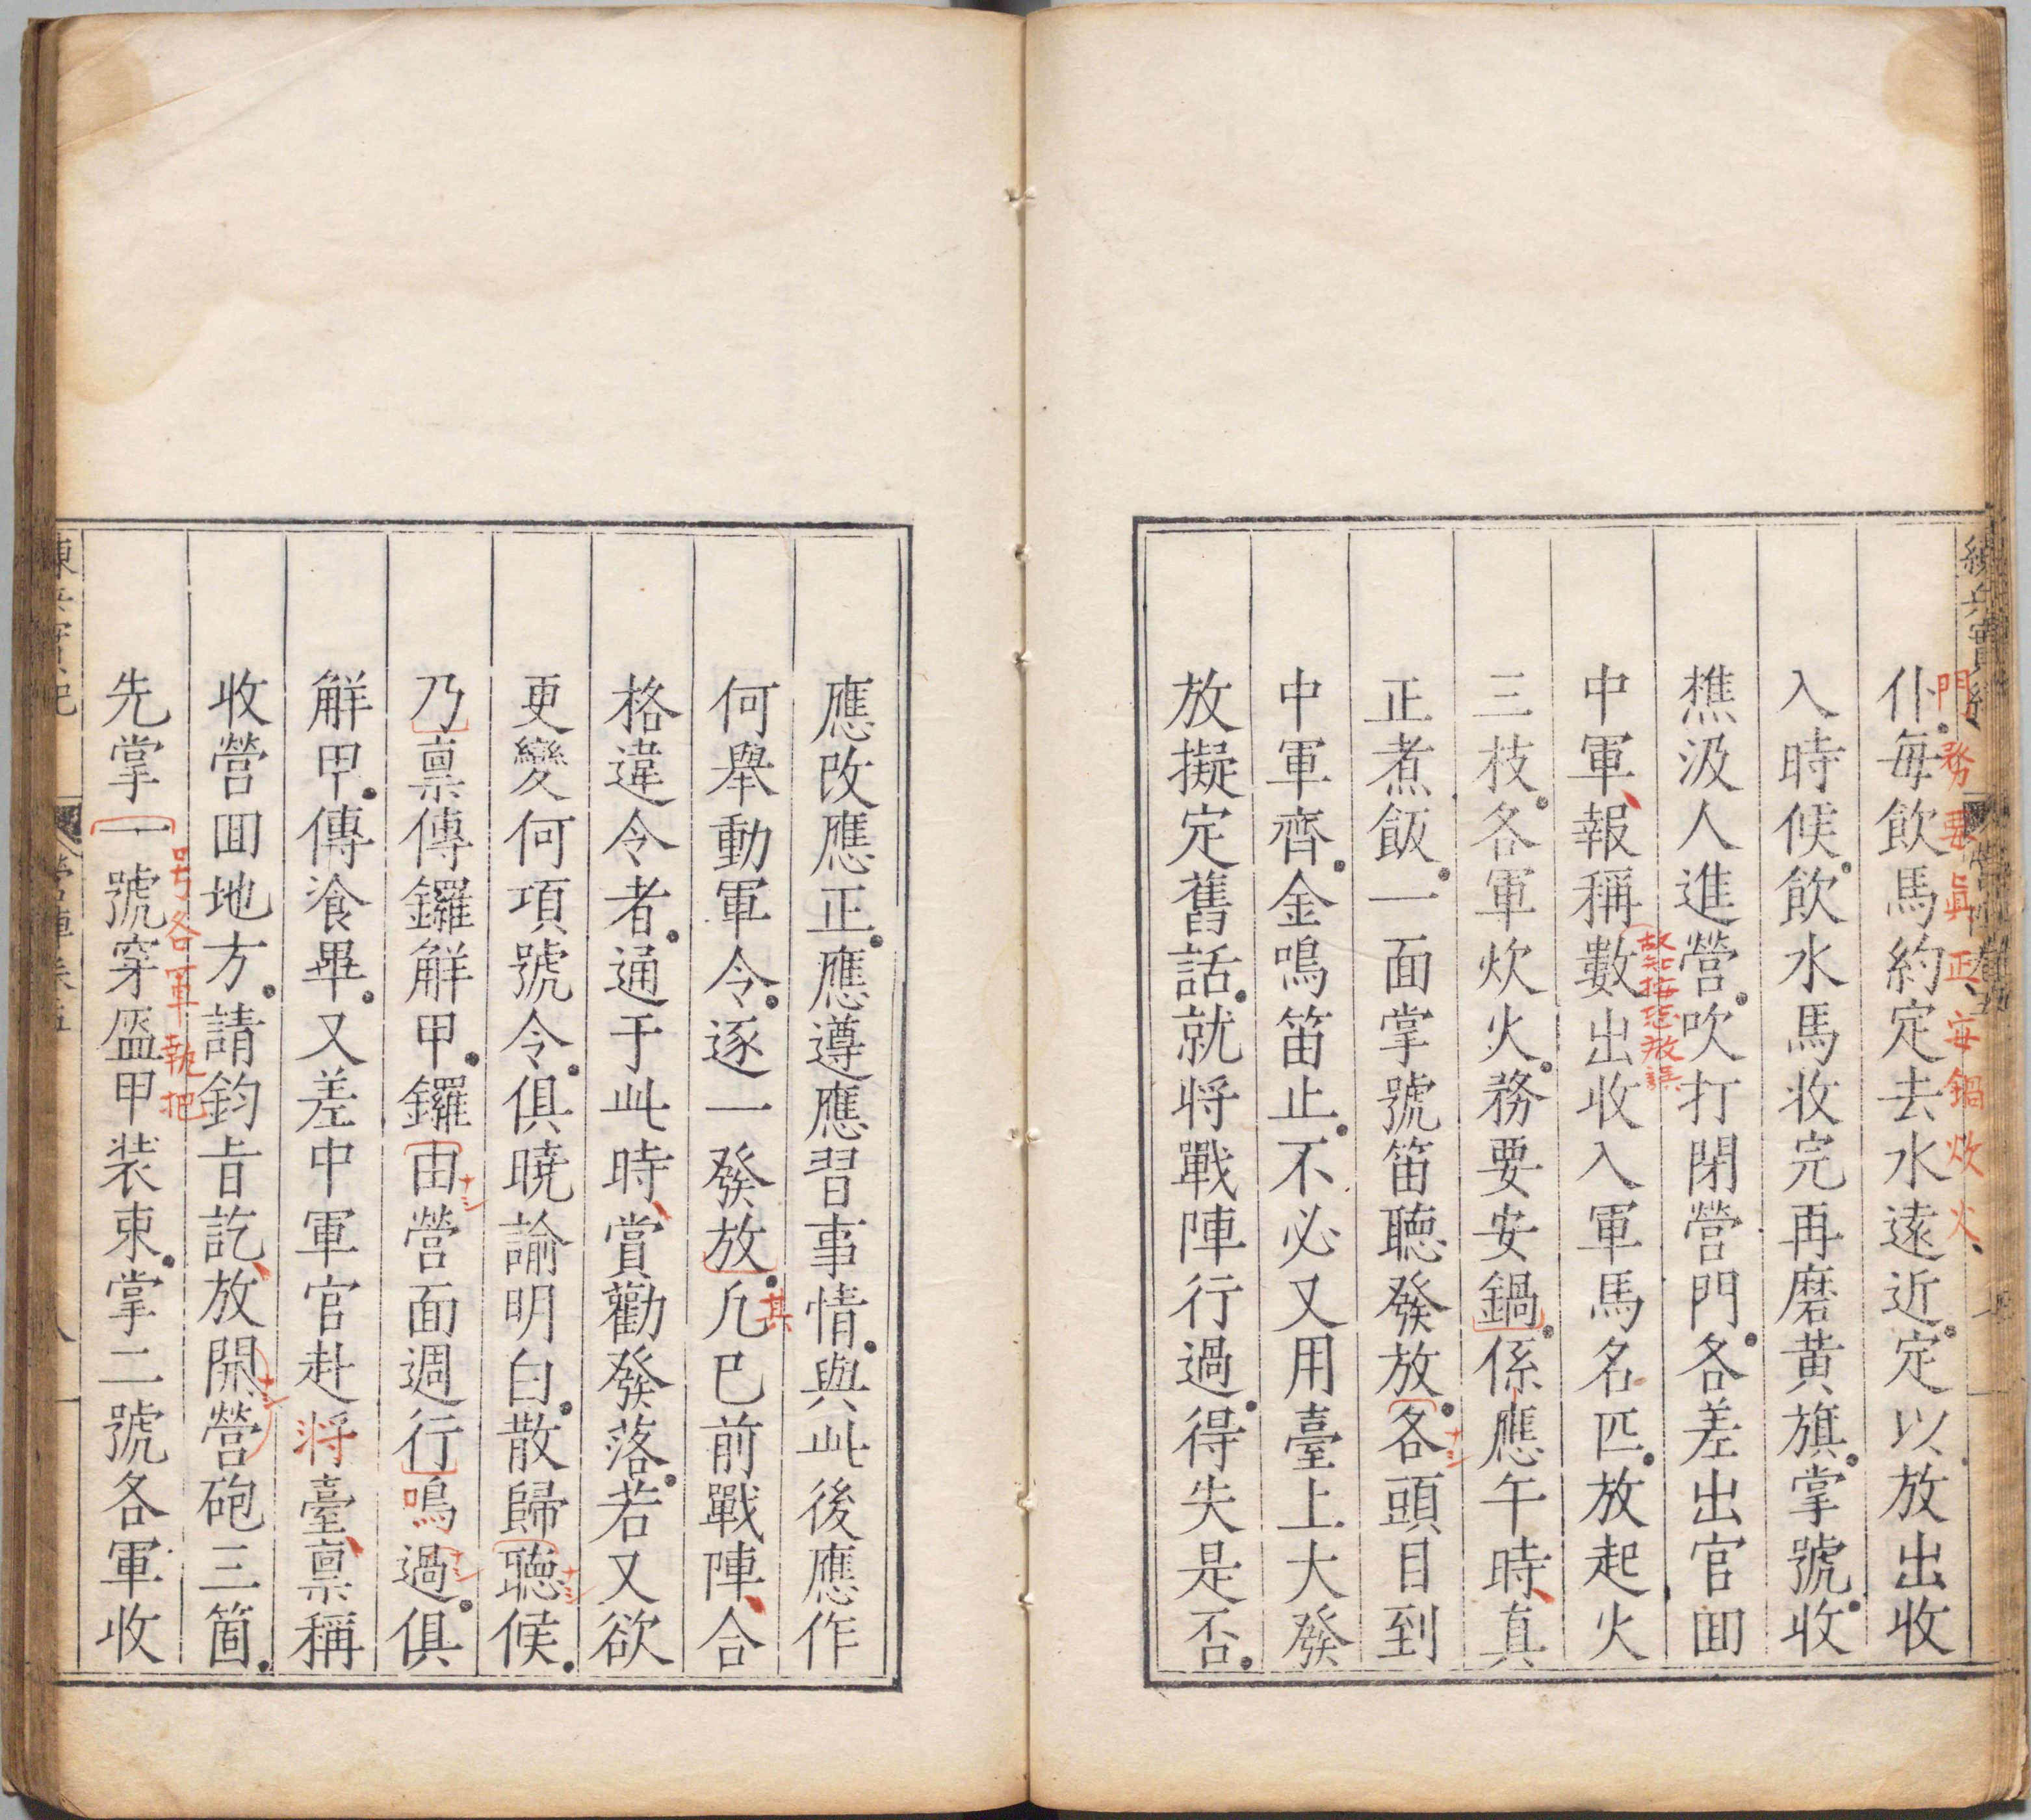 門務要眞正安鍋炊火
仆每飲馬約定去水遠近定以放出收
入時候飲水馬收完再磨黄旗掌號收
樵汲人進營吹打閉營門各差出官回
故知
中軍報稱數出收入軍馬名匹放起火
三枝各軍炊火務要安鍋係應午時真
正煮飯一面掌號笛聴發放各頭目到
ナシ
中軍齊金鳴笛止不必又用臺上大發
放擬定舊話就将戰陣行過得失是否
應改應正應遵應習事情與此後應作
其
何舉動軍令逐一發放凢巳前戰陣合
格違令者通于此時賞勸發落若又欲
更變何項號令俱曉諭明白散歸聴候
ナシ
乃禀傳鑼解甲鑼由營面週行鳴過俱
ナシ
ナシ
解甲傳飡畢又差中軍官赴将臺禀稱
收營回地方請鈞旨訖放開營砲三箇
ナシ
号各軍執把
先掌一號穿盔甲装束掌二號各軍收